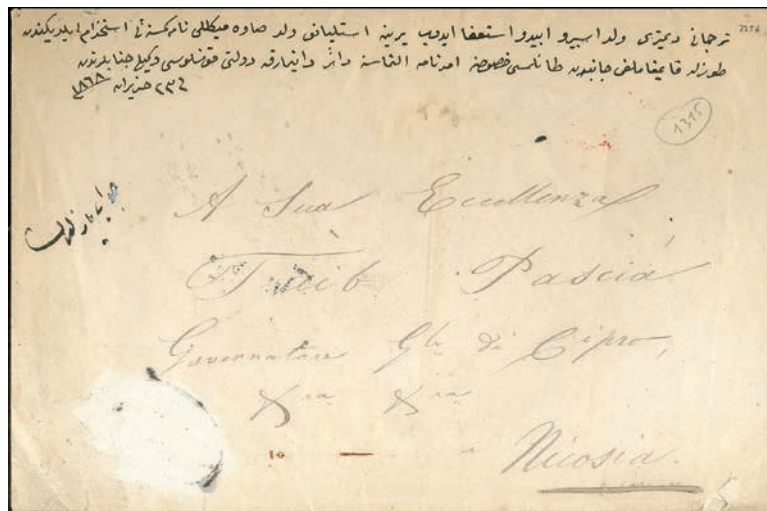 ترجمانی دیمتری ولد اسپیرو ابیدو استعفا ایدوب یرینه استلیانی ولد صاوه میکللی نام کسنه‌ی استخدام ایلدیکندن
طوزله قایمقاملغی جانبدن طانلمسی خصوصنه امرنامه التماسنه دائر دانیمارقه دولتی قونسلوسی وکیلی جنابلرندن
حزیران ١٨٦٨
1315
A Sua Eccellenza
Taib Pascià
Governatore Gle di Cipro,
&ra &ra
Nicosia.